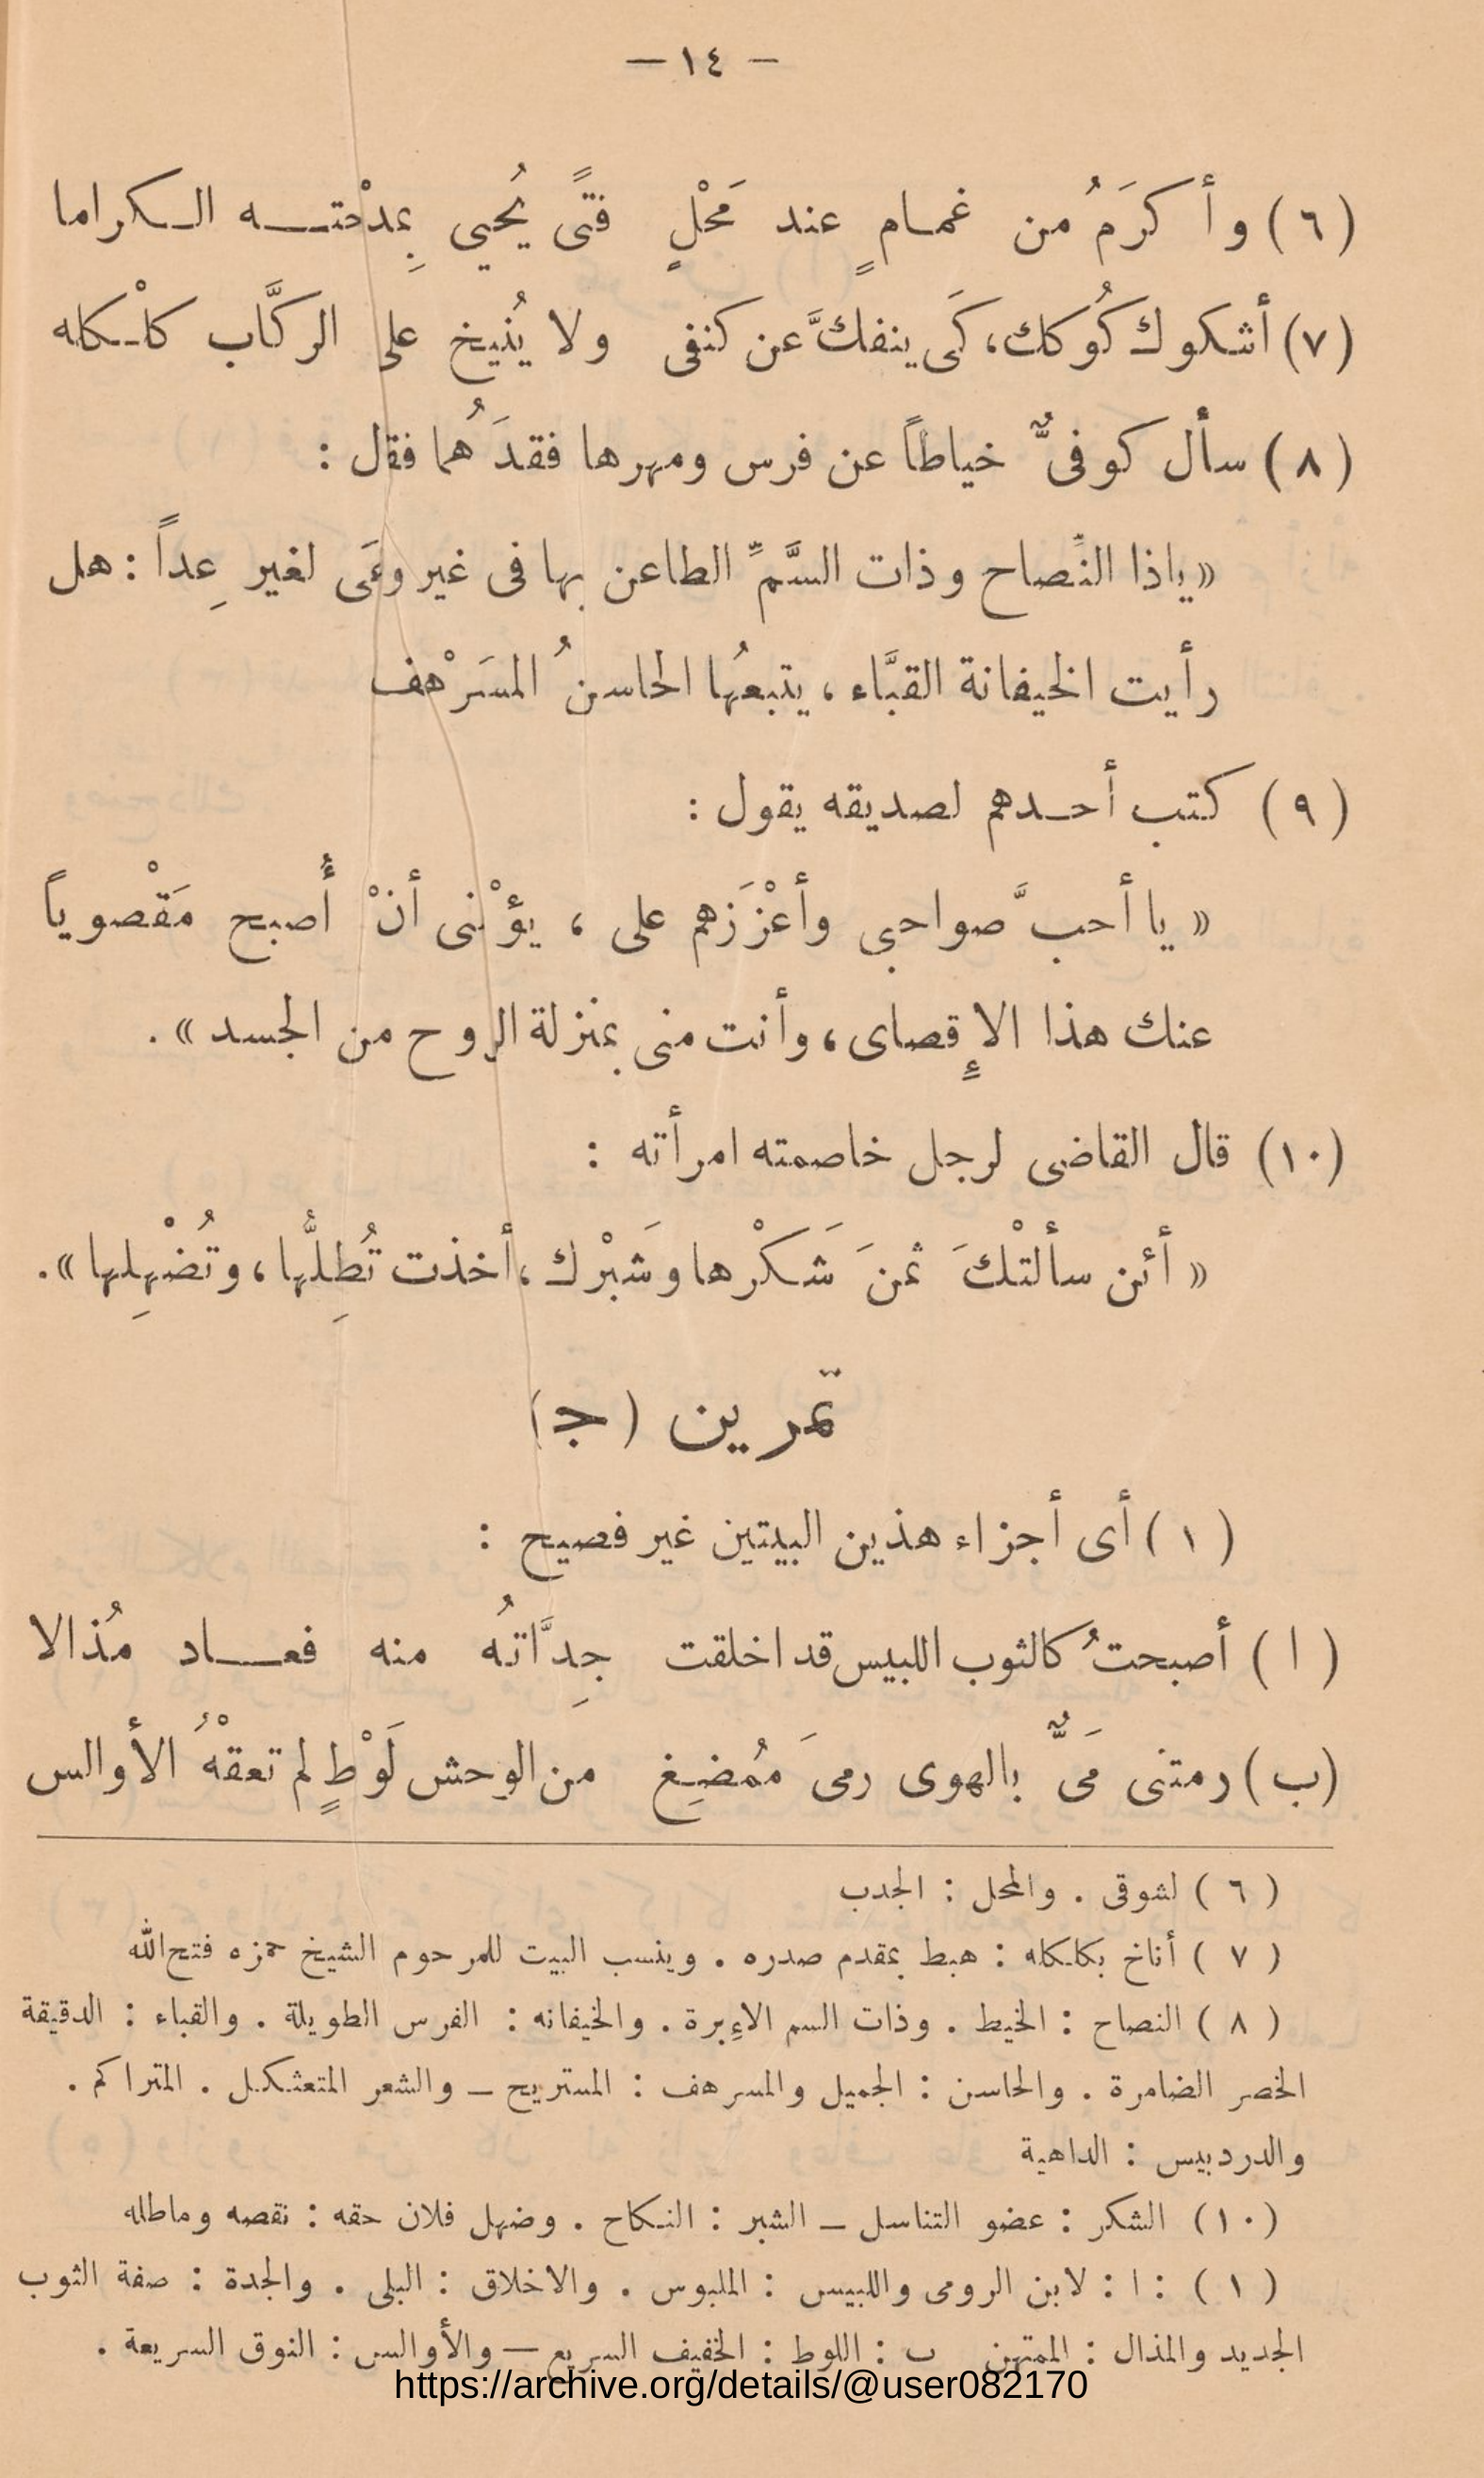 — ١٤ —
(٦) وأكرَمُ من غمامٍ عند مَحْلٍ فتًى يُحيي بِمدْحته الكراما
(٧) أشكوك كُوكك، كَى ينفكَّ عن كنفى ولا يُنيخ على الركَّاب كلْكله
(٨) سأل كوفىٌّ خياطاً عن فرس ومهرها فقدَهُما فقال :
« ياذا النِّصاح وذات السَّمِّ الطاعن بها فى غير وغَى لغير عِداً : هل
رأيت الخيفانة القبَّاء ، يتبعُها الحاسنُ المسَرْهف
(٩) كتب أحدهم لصديقه يقول :
« يا أحبَّ صواحبى وأعْزَزَهم على ، يؤْنى أنْ أُصبح مَقْصوياً
عنك هذا الإقصاى ، وأنت منى بمنزلة الروح من الجسد » .
(١٠) قال القاضى لرجل خاصمته امرأته :
« أئن سألتْكَ ثمنَ شَكْرها وشَبْرك ، أخذت تُطِلُّها ، وتُضْهِلها » .
تمرين (ج)
(١) أى أجزاء هذين البيتين غير فصيح :
(ا) أصبحتُ كالثوب اللبيس قد اخلقت جِدَّاتُه منه فعاد مُذالا
(ب) رمتنى مَىٌّ بالهوى رمىَ مُمضِغ من الوحش لَوْطٍ لم تعقْهُ الأوالس
(٦) لشوقى . والمحل : الجدب
(٧) أناخ بكلكله : هبط بمقدم صدره . وينسب البيت للمرحوم الشيخ حمزه فتح الله
(٨) النصاح : الخيط . وذات السم الاءِبرة . والخيفانه : الفرس الطويلة . والقباء : الدقيقة
الخصر الضامرة . والحاسن : الجميل والمسرهف : المستريح — والشعر المتعثكل . المتراكم .
والدردبيس : الداهية
(١٠) الشكر : عضو التناسل — الشبر : النكاح . وضهل فلان حقه : نقصه وماطله
(١) : ا : لابن الرومى واللبيس : الملبوس . والاخلاق : البلى . والجدة : صفة الثوب
الجديد والمذال : الممتهن ب : اللوط : الخفيف السريع — والأوالس : النوق السريعة .
https://archive.org/details/@user082170